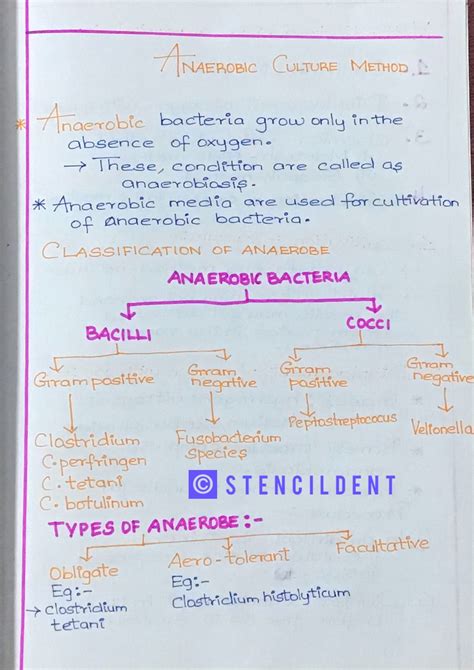 ANAEROBIC CULTURE METHOD
* Anaerobic bacteria grow only in the
absence of oxygen.
→ These, condition are called as
anaerobiasis.
* Anaerobic media are used for cultivation
of anaerobic bacteria.
CLASSIFICATION OF ANAEROBE
ANAEROBIC BACTERIA
BACILLI COCCI
Gram positive Gram negative Gram positive Gram negative
Clostridium Fusobacterium Peptostreptococcus Velionella
C. perfringen species
C. tetani
C. botulinum
© STENCILDENT
TYPES OF ANAEROBE :-
Obligate Aero-tolerant Facultative
Eg:- Eg:-
→ clostridium Clostridium histolyticum
tetani